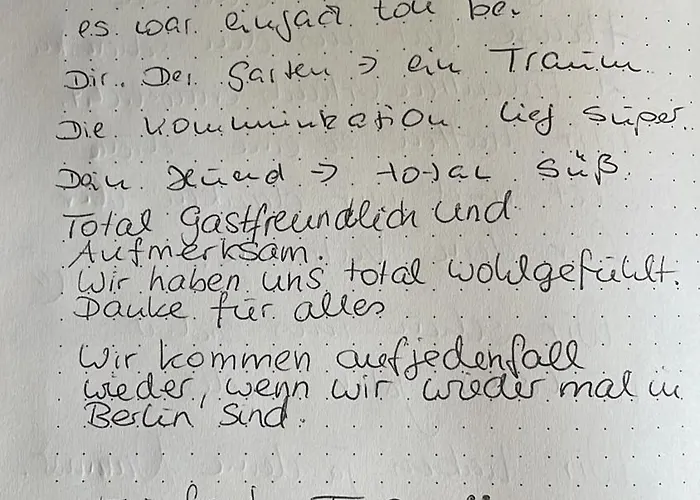 es war einfach toll bei
Dir. Der Garten → ein Traum
Die Kommunikation lief super.
Dein Hund → total süß.
Total Gastfreundlich und
Aufmerksam.
Wir haben uns total wohlgefühlt.
Danke für alles
Wir kommen aufjedenfall
wieder, wenn wir wieder mal in
Berlin sind.